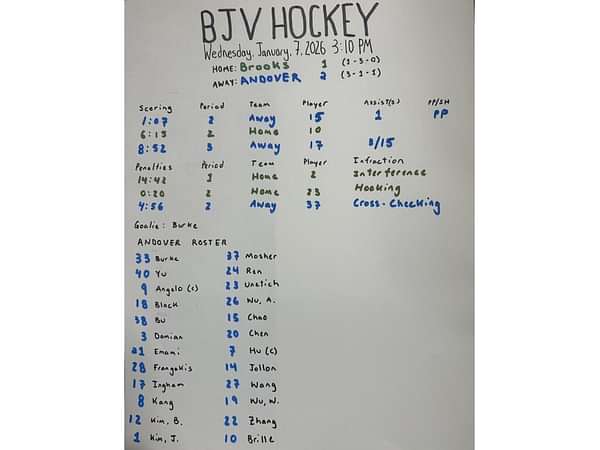 BJV HOCKEY
Wednesday, January, 7, 2026 3:10 PM
HOME: Brooks 1 (1-5-0)
AWAY: ANDOVER 2 (3-1-1)
Scoring Period Team Player Assist(s) PP/SH
1:07 2 Away 15 1 PP
6:15 2 Home 10
8:52 3 Away 17 8/15
Penalties Period Team Player Infraction
14:42 1 Home 2 Interference
0:20 2 Home 23 Hooking
4:56 2 Away 37 Cross-Checking
Goalie: Burke
ANDOVER ROSTER
33 Burke 37 Mosher
40 Yu 24 Ren
9 Angelo (c) 23 Unetich
18 Black 26 Wu, A.
38 Bu 15 Chao
3 Damian 20 Chen
21 Emami 7 Hu (c)
28 Frangakis 14 Jollon
17 Ingham 27 Wang
8 Kang 19 Wu, W.
12 Kim, B. 22 Zhang
1 Kim, J. 10 Brille